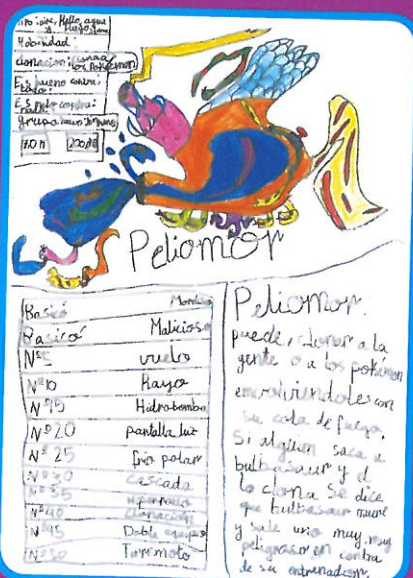 tipo: aire, Hello, agua
Habilidad:
clonación: clona a
los pokémon
Es bueno contra:
todo.
Es malo contra:
nada.
grupo:
Peliomor
Basicó
Basicó Malicioso
Nº5 vuelo
Nº10 Rayo
Nº15 Hidrobomba
Nº20 pantalla luz
Nº25 frio polar
Nº30 cascada
Nº35 Hiperrayo
Nº40 clonación
Nº45 Doble equipo
Nº50
Peliomor:
puede, clonar a la
gente o a los pokémon
envolviendoles con
su cola de fuego.
Si alguien saca a
bulbasaur y el
lo clona se dice
que bulbasaur muere
y sale uno muy, muy
peligroso en contra
de su entrenador.